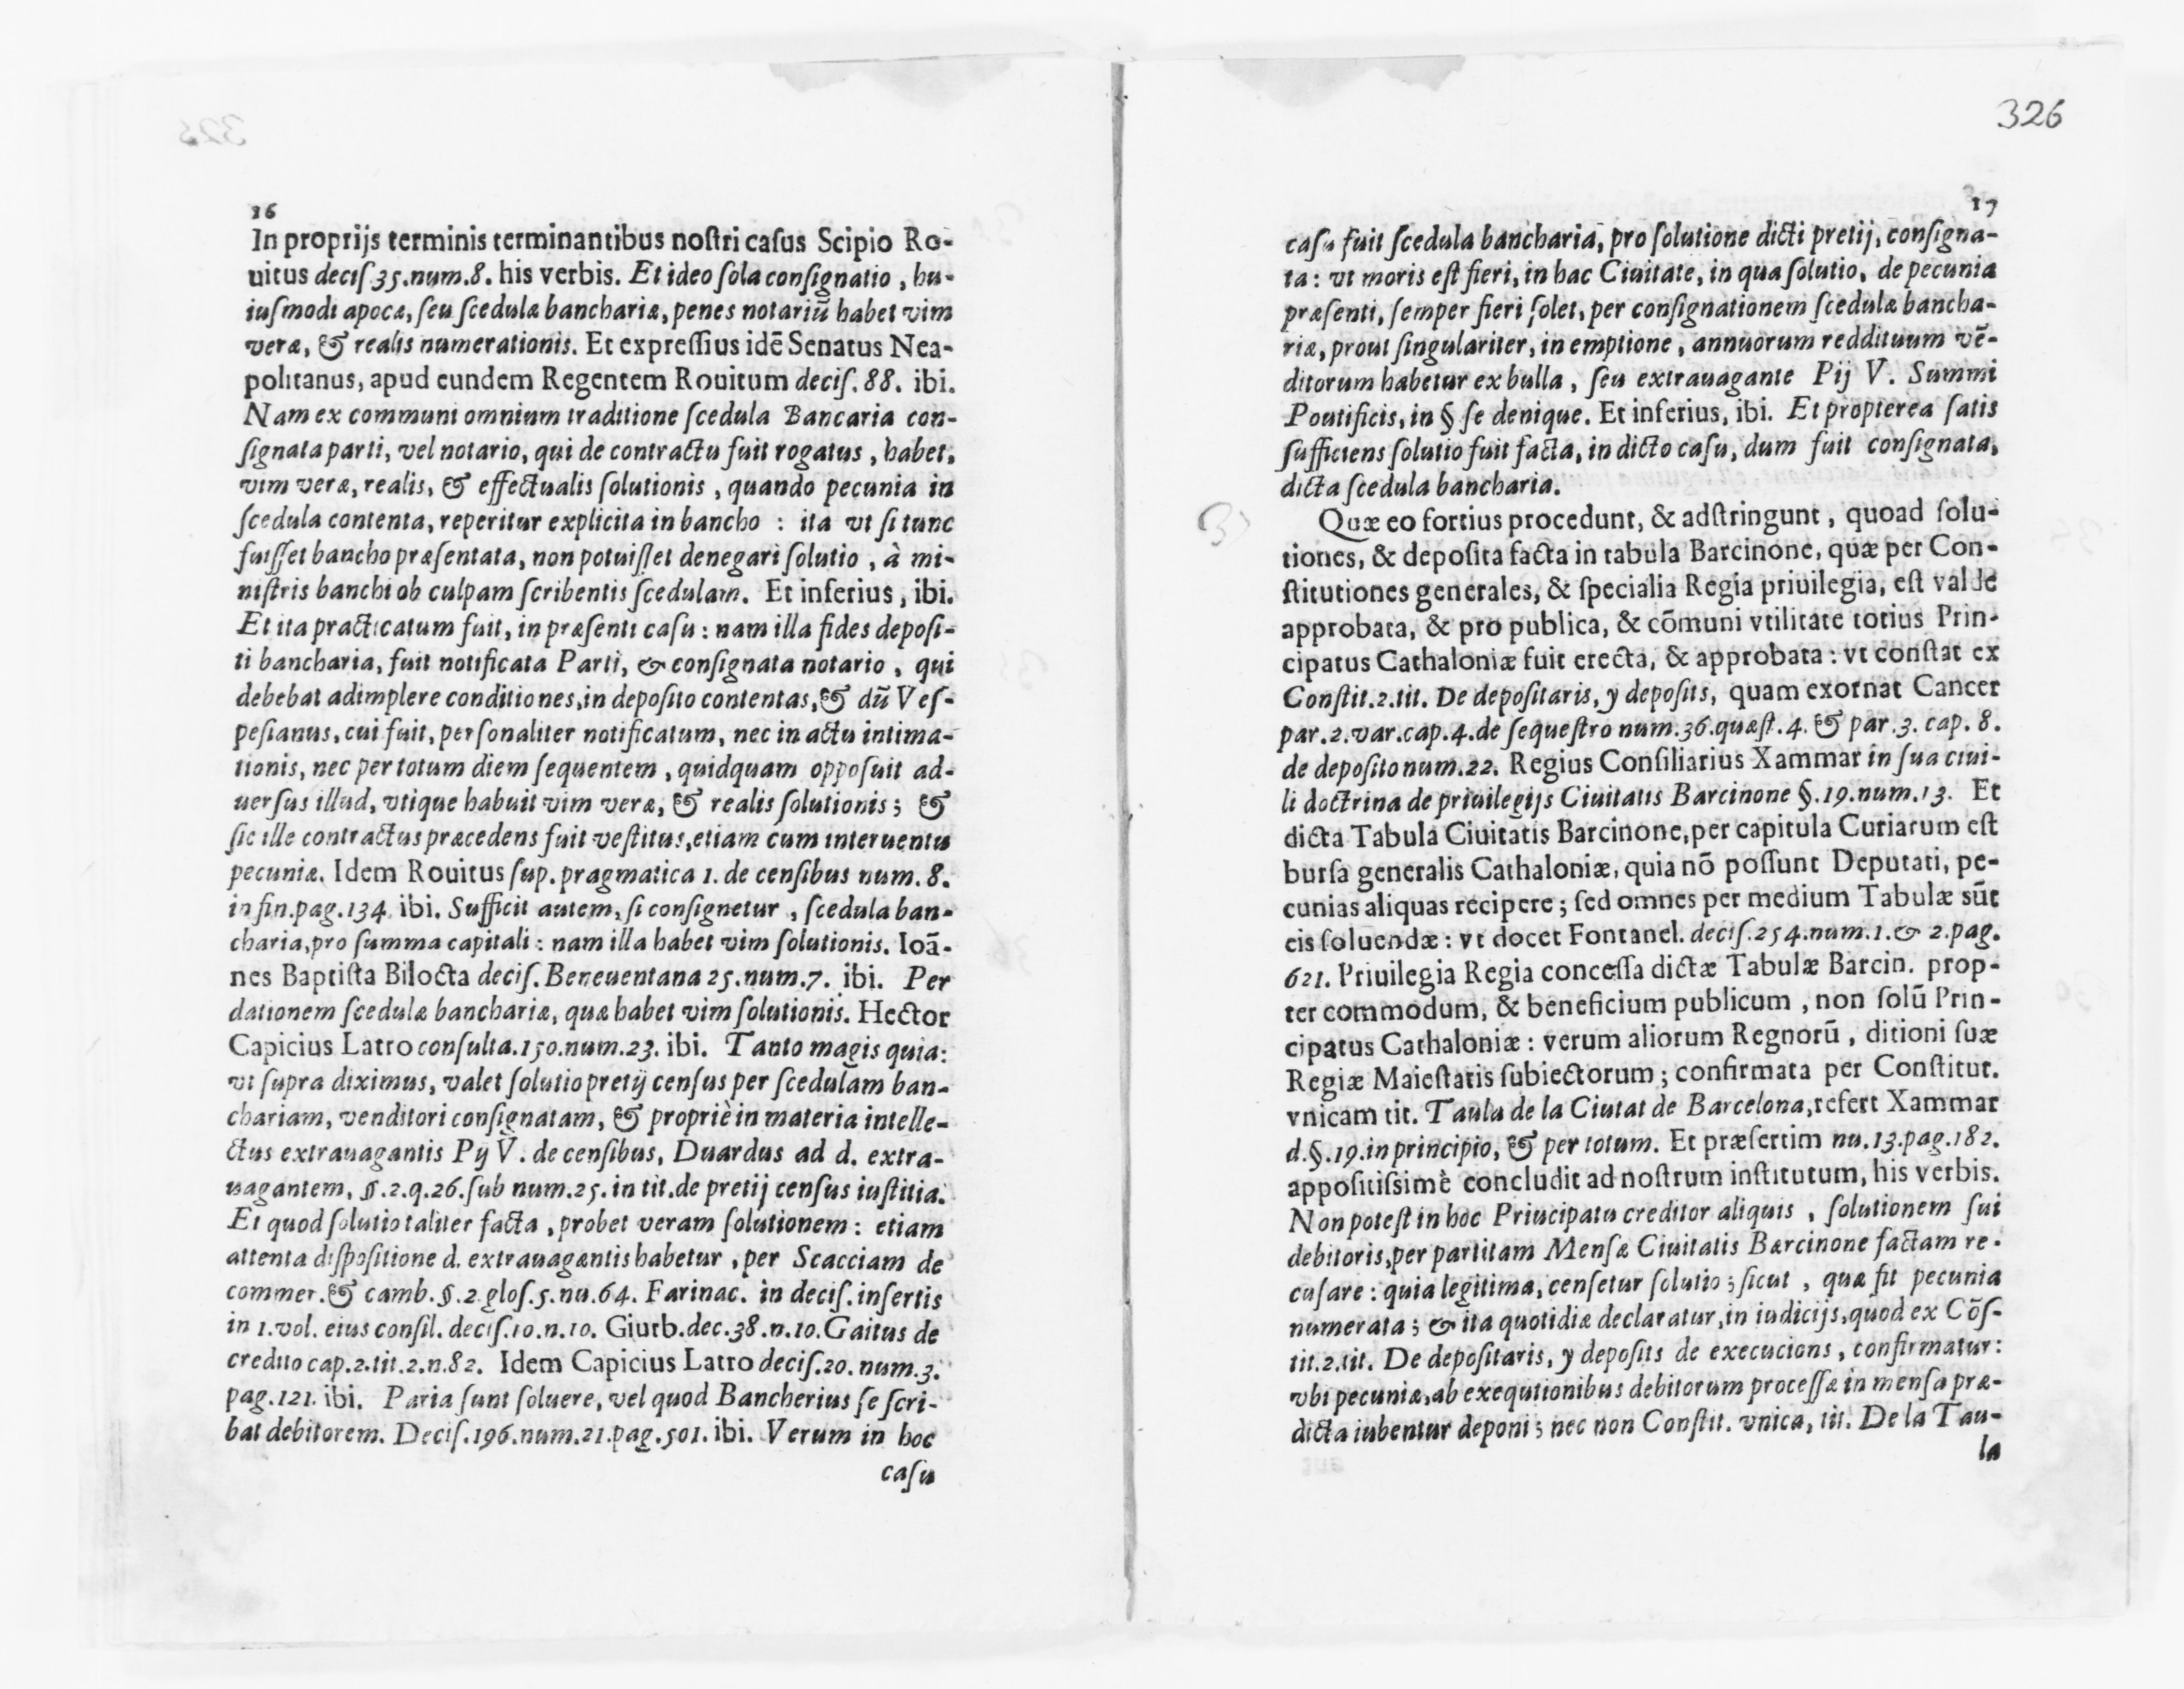 16
In proprijs terminis terminantibus nostri casus Scipio Ro-
uitus decis.35.num.8. his verbis. Et ideo sola consignatio, hu-
iusmodi apocæ, seu scedulæ banchariæ, penes notariũ habet vim
veræ, & realis numerationis. Et expressius idẽ Senatus Nea-
politanus, apud eundem Regentem Rouitum decis. 88. ibi.
Nam ex communi omnium traditione scedula Bancaria con-
signata parti, vel notario, qui de contractu fuit rogatus, habet,
vim veræ, realis, & effectualis solutionis, quando pecunia in
scedula contenta, reperitur explicita in bancho : ita vt si tunc
fuisset bancho præsentata, non potuisset denegari solutio, à mi-
nistris banchi ob culpam scribentis scedulam. Et inferius, ibi.
Et ita practicatum fuit, in præsenti casu : nam illa fides deposi-
ti bancharia, fuit notificata Parti, & consignata notario, qui
debebat adimplere conditiones, in deposito contentas, & dũ Ves-
pesianus, cui fuit, personaliter notificatum, nec in actu intima-
tionis, nec per totum diem sequentem, quidquam opposuit ad-
uersus illud, vtique habuit vim veræ, & realis solutionis; &
sic ille contractus præcedens fuit vestitus, etiam cum interuentu
pecuniæ. Idem Rouitus sup. pragmatica 1. de censibus num. 8.
in fin.pag.134. ibi. Sufficit autem, si consignetur, scedula ban-
charia, pro summa capitali : nam illa habet vim solutionis. Ioã-
nes Baptista Bilocta decis. Beneuentana 25.num.7. ibi. Per
dationem scedulæ banchariæ, quæ habet vim solutionis. Hector
Capicius Latro consulta.150.num.23. ibi. Tanto magis quia:
vt supra diximus, valet solutio pretij census per scedulam ban-
chariam, venditori consignatam, & propriè in materia intelle-
ctus extrauagantis Pij V. de censibus, Duardus ad d. extra-
uagantem, §.2.q.26.sub num.25. in tit.de pretij census iustitia.
Et quod solutio taliter facta, probet veram solutionem : etiam
attenta dispositione d. extrauagantis habetur, per Scacciam de
commer. & camb. §.2.glos.5.nu.64. Farinac. in decis. insertis
in 1.vol. eius consil. decis.10.n.10. Giurb.dec.38.n.10.Gaitus de
credito cap.2.tit.2.n.82. Idem Capicius Latro decis.20.num.3.
pag.121. ibi. Paria sunt soluere, vel quod Bancherius se scri-
bat debitorem. Decis.196.num.21.pag.501.ibi. Verum in hoc
casu
326
17
casu fuit scedula bancharia, pro solutione dicti pretij, consigna-
ta : vt moris est fieri, in hac Ciuitate, in qua solutio, de pecunia
præsenti, semper fieri solet, per consignationem scedulæ bancha-
riæ, prout singulariter, in emptione, annuorum reddituum vẽ-
ditorum habetur ex bulla, seu extrauagante Pij V. Summi
Pontificis, in § se denique. Et inferius, ibi. Et propterea satis
sufficiens solutio fuit facta, in dicto casu, dum fuit consignata,
dicta scedula bancharia.
Quæ eo fortius procedunt, & adstringunt, quoad solu-
tiones, & deposita facta in tabula Barcinone, quæ per Con-
stitutiones generales, & specialia Regia priuilegia, est valde
approbata, & pro publica, & cõmuni vtilitate totius Prin-
cipatus Cathaloniæ fuit erecta, & approbata : vt constat ex
Constit.2.tit. De depositaris, y deposits, quam exornat Cancer
par.2.var.cap.4.de sequestro num.36.quæst.4. & par.3. cap. 8.
de deposito num.22. Regius Consiliarius Xammar in sua ciui-
li doctrina de priuilegijs Ciuitatis Barcinone §.19.num.13. Et
dicta Tabula Ciuitatis Barcinone, per capitula Curiarum est
bursa generalis Cathaloniæ, quia nõ possunt Deputati, pe-
cunias aliquas recipere; sed omnes per medium Tabulæ sũt
eis soluendæ : vt docet Fontanel. decis.254.num.1.& 2.pag.
621. Priuilegia Regia concessa dictæ Tabulæ Barcin. prop-
ter commodum, & beneficium publicum, non solũ Prin-
cipatus Cathaloniæ : verum aliorum Regnorũ, ditioni suæ
Regiæ Maiestatis subiectorum; confirmata per Constitut.
vnicam tit. Taula de la Ciutat de Barcelona, refert Xammar
d.§.19.in principio, & per totum. Et præsertim nu.13.pag.182.
appositissimè concludit ad nostrum institutum, his verbis.
Non potest in hoc Principatu creditor aliquis, solutionem sui
debitoris, per partitam Mensæ Ciuitatis Barcinone factam re-
cusare : quia legitima, censetur solutio; sicut, quæ fit pecunia
numerata; & ita quotidiæ declaratur, in iudicijs, quod ex Cõs-
tit.2.tit. De depositaris, y deposits de execucions, confirmatur:
vbi pecuniæ, ab exequtionibus debitorum processæ in mensa præ-
dicta iubentur deponi; nec non Constit. vnica, tit. De la Tau-
la